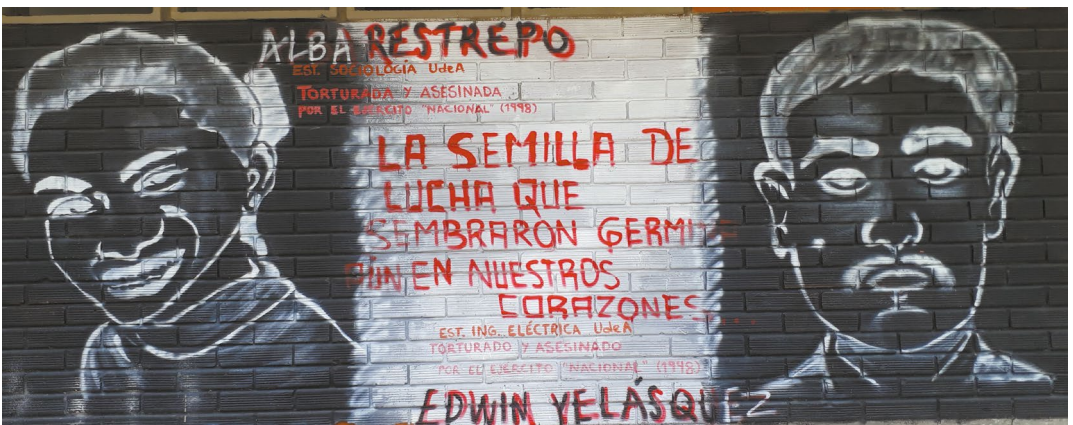 ALBA RESTREPO
EST. SOCIOLOGÍA UdeA
TORTURADA Y ASESINADA
POR EL EJERCITO "NACIONAL" (1998)
LA SEMILLA DE
LUCHA QUE
SEMBRARON GERMI
AÚN EN NUESTROS
CORAZONES...
EST. ING. ELÉCTRICA UdeA
TORTURADO Y ASESINADO
POR EL EJERCITO "NACIONAL" (1998)
EDWIN VELÁSQUEZ